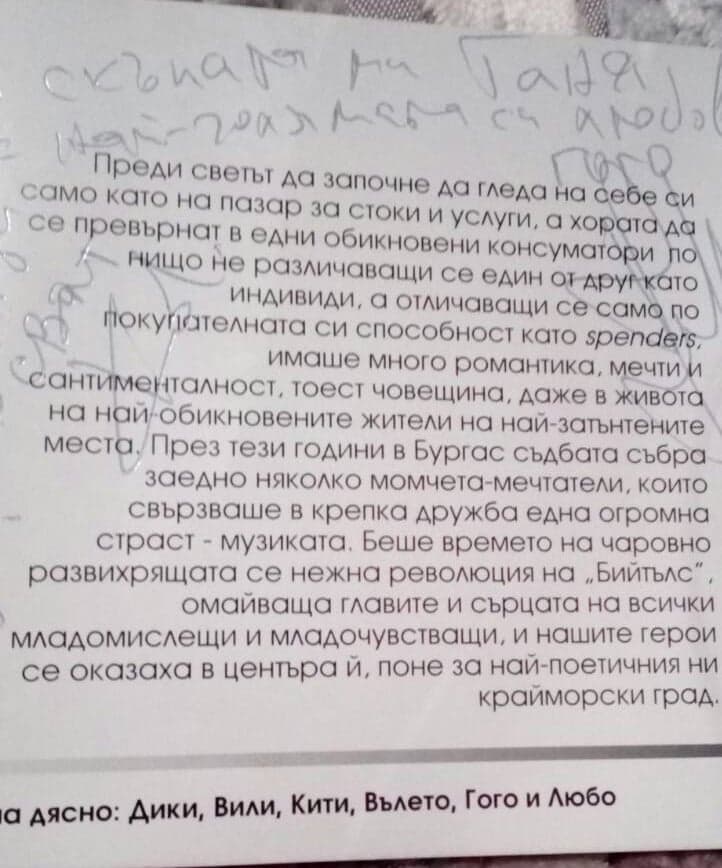 скъпата ми Таня
най-голямата си любов
Гого
Преди светът да започне да гледа на себе си
само като на пазар за стоки и услуги, а хората да
се превърнат в едни обикновени консуматори по
нищо не различаващи се един от друг като
индивиди, а отличаващи се само по
покупателната си способност като spenders,
имаше много романтика, мечти и
сантименталност, тоест човещина, даже в живота
на най-обикновените жители на най-затънтените
места. През тези години в Бургас съдбата събра
заедно няколко момчета-мечтатели, които
свързваше в крепка дружба една огромна
страст - музиката. Беше времето на чаровно
развихрящата се нежна революция на „Бийтълс“,
омайваща главите и сърцата на всички
младомислещи и младочувстващи, и нашите герои
се оказаха в центъра й, поне за най-поетичния ни
крайморски град.
на дясно: Дики, Вили, Кити, Вълето, Гого и Любо